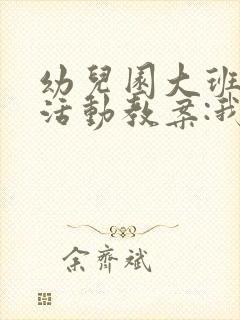 幼兒園大班
活動教案:我
余齊斌